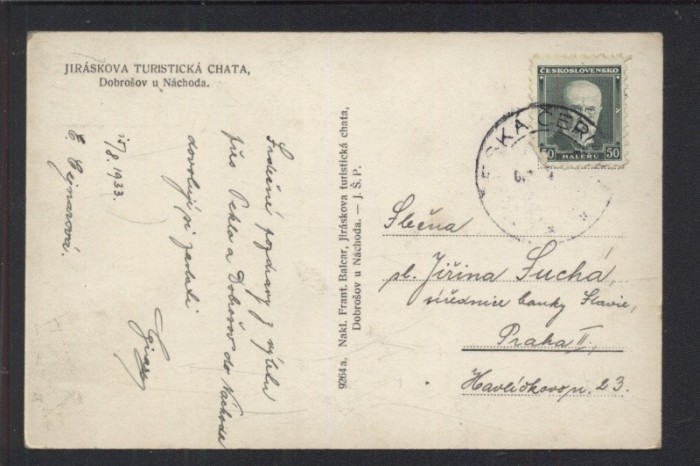 JIRÁSKOVA TURISTICKÁ CHATA,
Dobrošov u Náchoda.
Srdečné pozdravy z výletu
přes Peklo a Dobrošov do Náchoda
dovolují si zaslati
15/8. 1933.
E. Cejnarová.
9264 a. Nakl. Frant. Balcar, Jiráskova turistická chata,
Dobrošov u Náchoda. — J. Š. P.
ČESKOSLOVENSKO
50 50
HALÉŘŮ
ESKÁ ČER
Slečna
sl. Jiřina Suchá,
úřednice banky Slavie,
Praha II.,
Havlíčkovo n. 23.